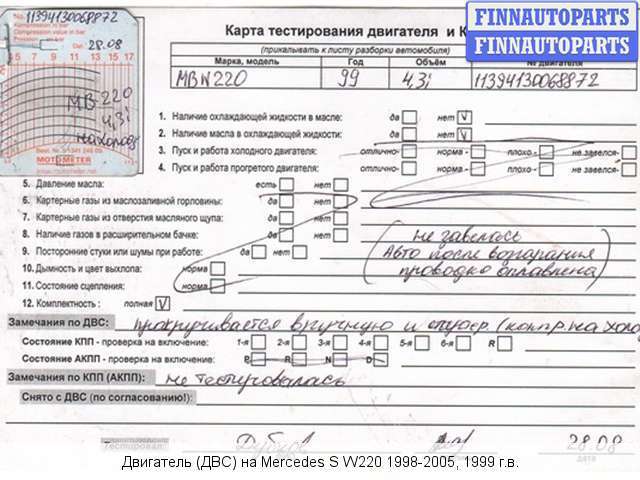 No. 11394130068872
Kompression in bar
Compression value in bar
Dat: 28.08
5 7 9 11 13 15 17
MB 220
4,3i
на холодн
Best. Nr.
MOTOMETER
FINNAUTOPARTS
FINNAUTOPARTS
Карта тестирования двигателя и К
(прикалывать к листу разборки автомобиля)
Марка, модель Год Объём № двигателя
MB W220 99 4,3i 11394130068872
1. Наличие охлаждающей жидкости в масле: да нет V
2. Наличие масла в охлаждающей жидкости: да нет V
3. Пуск и работа холодного двигателя: отлично- норма - плохо - не завелся-
4. Пуск и работа прогретого двигателя: отлично- норма - плохо - не завелся-
5. Давление масла: есть нет
6. Картерные газы из маслозаливной горловины: да нет
7. Картерные газы из отверстия масляного щупа: да нет
8. Наличие газов в расширительном бачке: да нет
9. Посторонние стуки или шумы при работе: да нет
10. Дымность и цвет выхлопа: норма
11. Состояние сцепления: норма
12. Комплектность : полная V
не завелась
(Авто после возгорания
проводка оплавлена)
Замечания по ДВС: прокручивается вручную и стартер. (компр. на холо
Состояние КПП - проверка на включение: 1-я 2-я 3-я 4-я 5-я 6-я R
Состояние АКПП - проверка на включение: P R N D
Замечания по КПП (АКПП): не тестировалась
Снято с ДВС (по согласованию!):
Тестировал: 28.08
дата
Двигатель (ДВС) на Mercedes S W220 1998-2005, 1999 г.в.